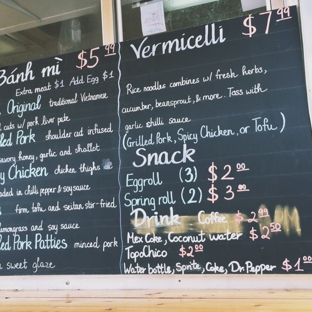 Bánh mì $5.99
Extra meat $1 Add Egg $1
Original traditional Vietnamese
cuts w/ pork liver pate
Pork shoulder cut infused
savory honey, garlic and shallot
Chicken chicken thighs
in chili pepper & soy sauce
firm tofu and seitan stir-fried
lemongrass and soy sauce
Pork Patties minced pork
sweet glaze
Vermicelli $7.99
Rice noodles combines w/ fresh herbs,
cucumber, beansprout, & more. Toss with
garlic chilli sauce
(Grilled Pork, Spicy Chicken, or Tofu)
Snack
Eggroll (3) $2.00
Spring roll (2) $3.00
Drink Coffee $2.99
Mex Coke, Coconut water $2.50
TopoChico $2.00
Water bottle, Sprite, Coke, Dr. Pepper $1.00